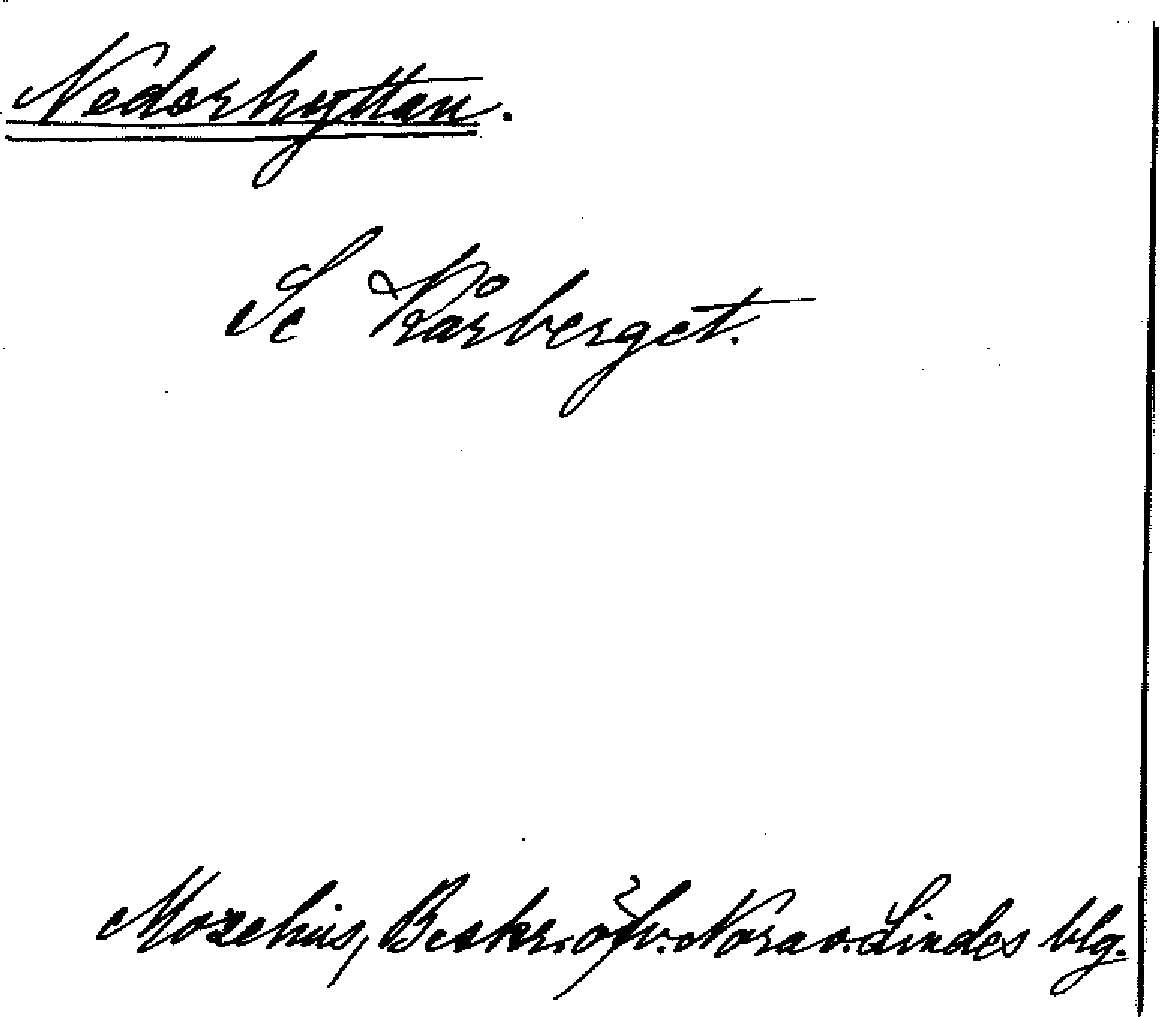 Nederhyttan.
Se Kårberget.
Mozelius, Beskr. öfv. Nora o. Lindes blg.